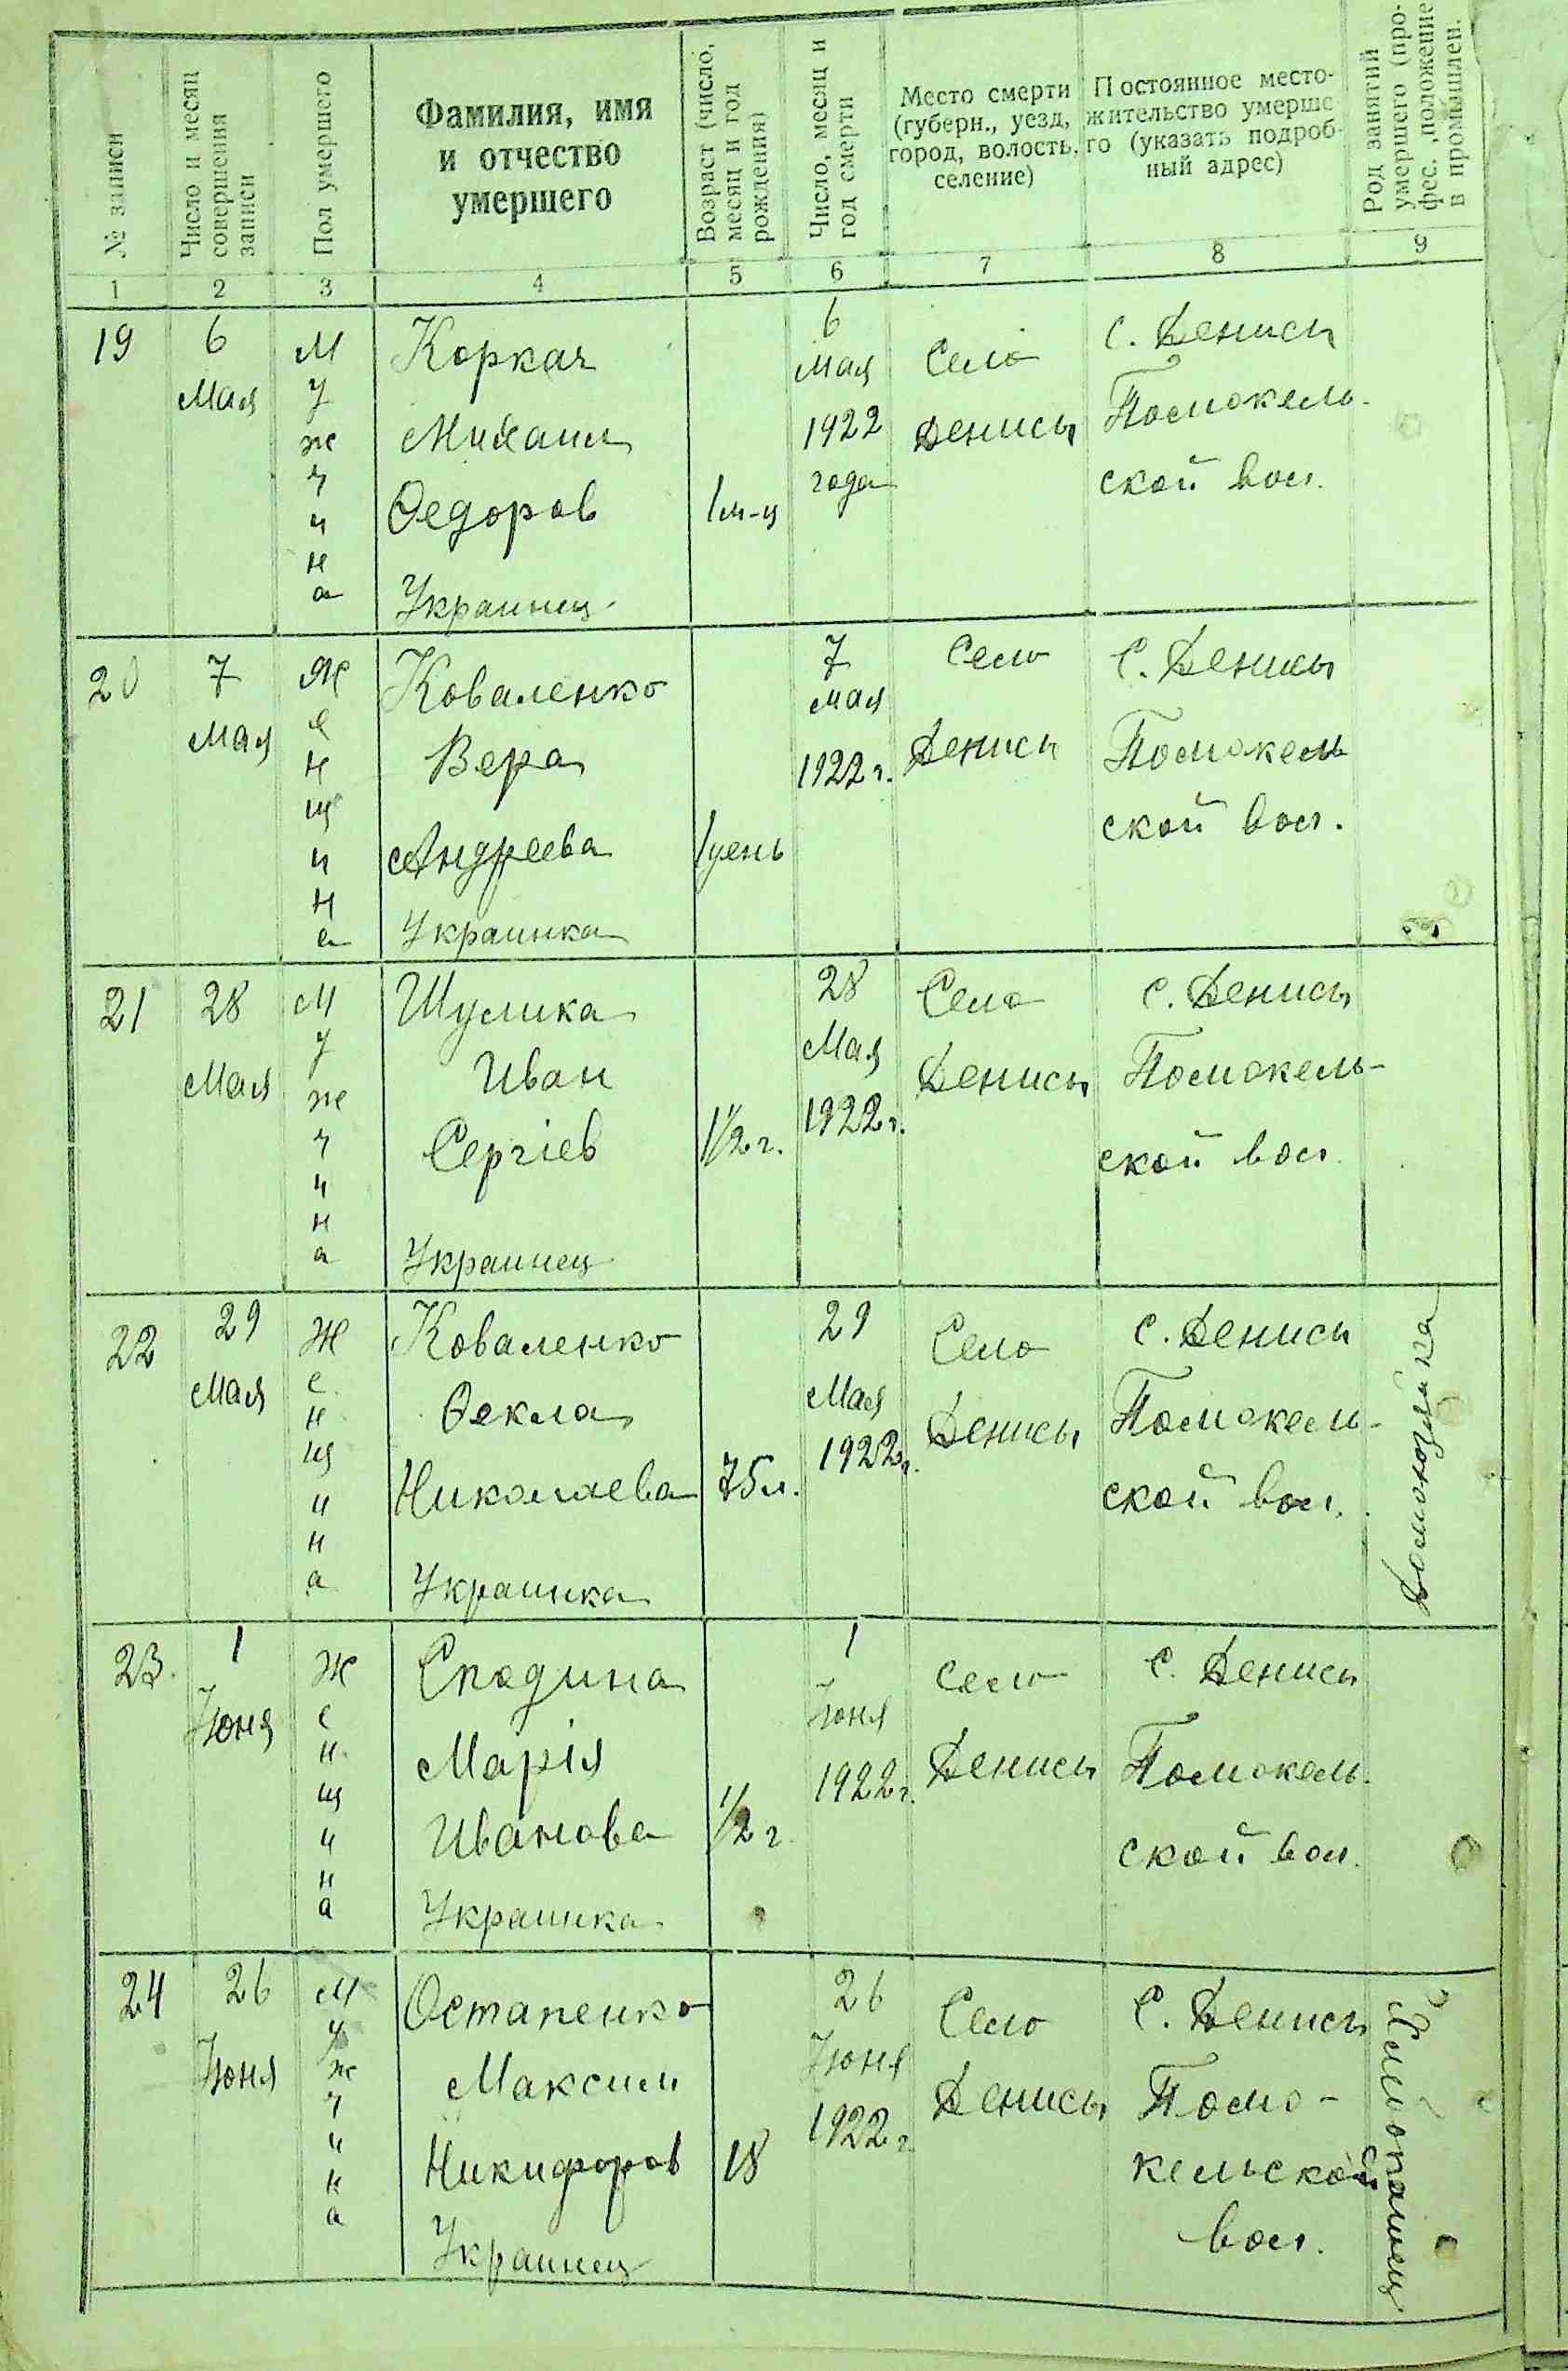 № записи
Число и месяц
совершения
записи
Пол умершего
Фамилия, имя
и отчество
умершего
Возраст (число,
месяц и год
рождения)
Число, месяц и
год смерти
Место смерти
(губерн., уезд,
город, волость,
селение)
Постоянное место-
жительство умерше
го (указать подроб-
ный адрес)
Род занятий
умершего (про-
фес. ,положение
в промышлен.
1 2 3 4 5 6 7 8 9
19
6
Мая
Мужчина
Коркач
Михаил
Ѳедоров
Украинец.
1 м-ц
6
мая
1922
года
Село
Денисы
С. Денисы
Помокель-
ской вол.
20
7
Мая
Женщина
Коваленко
Вера
Андреева
Украинка
1 день
7
мая
1922 г.
Село
Денисы
С. Денисы
Помокель
ской вол.
21
28
Мая
Мужчина
Шулика
Иван
Сергіев
Украинец
1 1/2 г.
28
Мая
1922 г.
Село
Денисы
С. Денисы
Помокель-
ской вол.
22
29
Мая
Женщина
Коваленко
Ѳекла
Николаева
Украинка
75 л.
29
Мая
1922 г.
Село
Денисы
С. Денисы
Помокель-
ской вол.
Домохозяйка
23.
1
Июня
Женщина
Сподина
Марія
Иванова
Украинка
1/2 г.
1
Июня
1922 г.
Село
Денисы
С. Денисы
Помокель-
ской вол.
24
26
Июня
Мужчина
Остапенко
Максим
Никифоров
Украинец
18
26
Июня
1922 г.
Село
Денисы
С. Денисы
Помо-
кельской
вол.